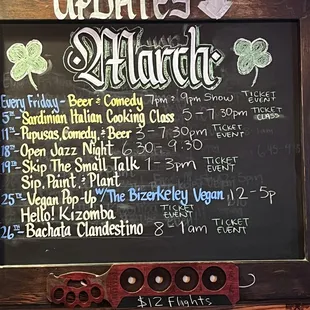 UPDATES
March
Every Friday - Beer & Comedy 7pm & 9pm Show TICKET EVENT
5th - Sardinian Italian Cooking Class 5 - 7:30pm TICKET CLASS
11th - Pupusas, Comedy, & Beer 3 - 7:30pm TICKET EVENT
18th - Open Jazz Night 6:30 - 9:30
19th - Skip The Small Talk 1 - 3pm TICKET EVENT
Sip, Paint, & Plant
25th - Vegan Pop-Up W/ The Bizerkeley Vegan 12 - 5p
Hello! Kizomba TICKET EVENT
26th - Bachata Clandestino 8 - 1am TICKET EVENT
$12 Flights